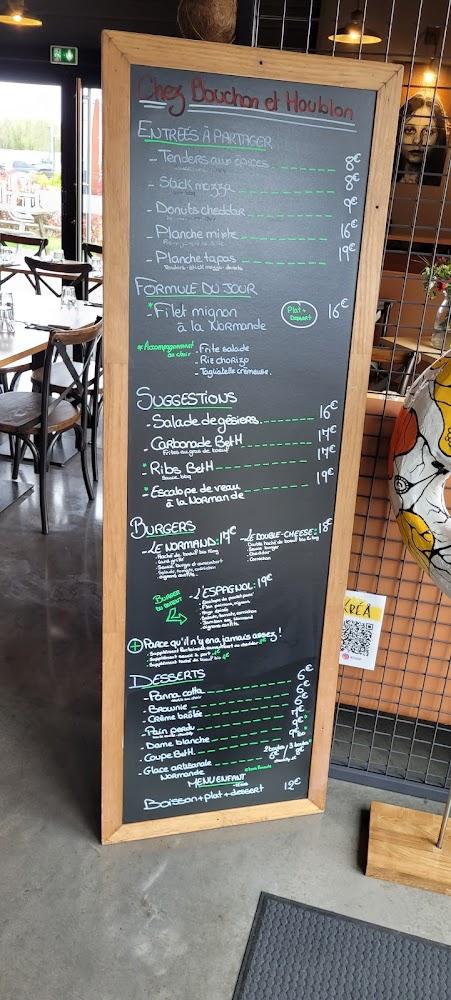 Chez Bouchon et Houblon
ENTRÉES À PARTAGER
- Tenders aux épices 8€
- Stick mozza 8€
- Donuts cheddar 9€
- Planche mixte 16€
- Planche tapas 19€
Tenders - stick mozza - donuts
FORMULE DU JOUR
*- Filet mignon à la Normande Plat + Dessert 16€
* Accompagnement au choix - Frite salade
- Riz chorizo
- Tagliatelle crémeuse.
SUGGESTIONS
- Salade de gésiers 16€
- Carbonade BetH 17€
*- Ribs BetH 17€
Sauce bbq
*- Escalope de veau 19€
à la Normande
BURGERS
- LE NORMAND: 17€
- LE DOUBLE-CHEESE: 18€
Sauce burger
Cheddar
Cornichon
BURGER DU MOMENT
- L'ESPAGNOL: 19€
+ Parce qu'il n'y en a jamais assez!
DESSERTS
- Panna cotta 6€
- Brownie 6€
- Crème brûlée
- Pain perdu
- Dame blanche
- Coupe BetH
- Glace artisanale Normande
MENU ENFANT
Boisson + plat + dessert 12€
KRÉA